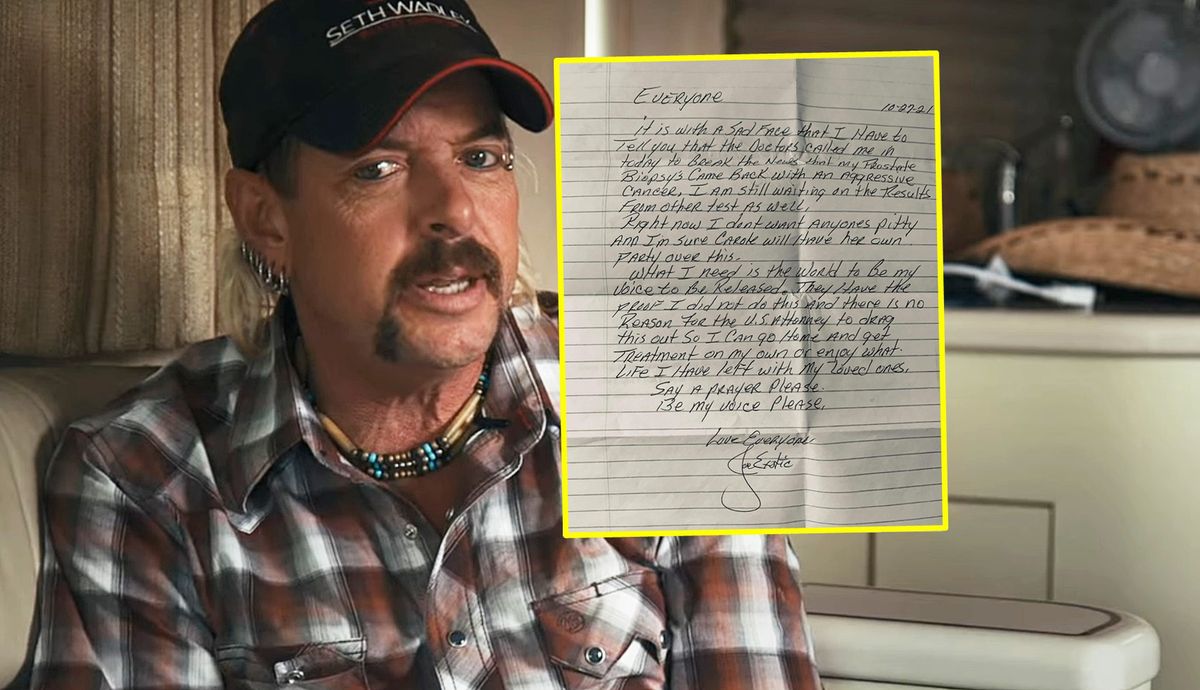 SETH WADLEY
Everyone
10-27-21
it is with a Sad Face that I Have to
tell you that the Doctors called me in
today to Break the News that my Prostate
Biopsy's Came Back with An Aggressive
Cancer, I am still waiting on the Results
From other test As well.
Right now I dont want Anyones pitty
And I'm sure Carole will Have her own
Party over this.
What I need is the World to Be my
Voice to be Released. They Have the
proof I did not do this And there is no
Reason For the U.S. Attorney to drag
this out So I Can go Home And get
Treatment on my own or enjoy what
Life I Have Left with My Loved ones.
Say A prayer Please.
Be my voice Please.
Love Everyone
Joe Exotic